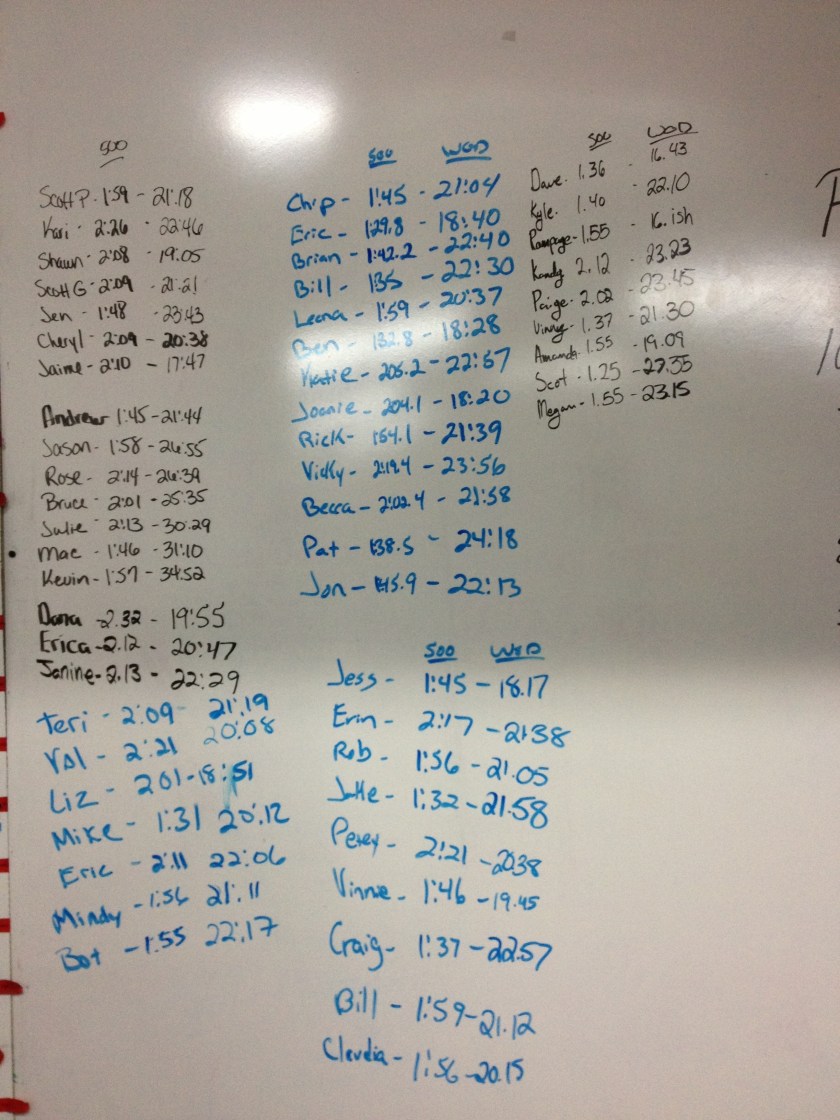 500
Scott P. 1:59 - 21:18
Kari - 2:26 - 22:46
Shawn - 2:08 - 19:05
Scott G - 2:09 - 21:21
Jen - 1:48 - 23:43
Cheryl - 2:09 - 20:38
Jaime - 2:10 - 17:47
Andrew 1:45 - 21:44
Jason - 1:58 - 26:55
Rose - 2:14 - 26:39
Bruce - 2:01 - 25:35
Julie - 2:13 - 30:29
Mac - 1:46 - 31:10
Kevin - 1:57 - 34:52
Dana - 2.32 - 19:55
Erica - 2.12 - 20:47
Janine - 2.13 - 22:29
Teri - 2:09 - 21:19
Val - 2:21 20:08
Liz - 201 - 18:51
Mike - 1:31 20:12
Eric - 2:11 22:06
Mindy - 1:56 21:11
Bot - 1:55 22:17
500 WOD
Chip - 1:45 - 21:04
Eric - 1:29.8 - 18:40
Brian - 1:42.2 - 22:40
Bill - 135 - 22:30
Leena - 1:59 - 20:37
Ben - 132.8 - 18:28
Katie - 205.2 - 22:57
Joanie - 204.1 - 18:20
Rick - 154.1 - 21:39
Vicky - 2:19.4 - 23:56
Becca - 2:02.4 - 21:58
Pat - 1:38.5 - 24:18
Jon - 1:45.9 - 22:13
500 WOD
Jess - 1:45 - 18.17
Erin - 2:17 - 21:38
Rob - 1:56 - 21.05
Jake - 1:32 - 21.58
2:21 - 20:38
Vinnie - 1:46 - 19.45
Craig - 1:37 - 22:57
Bill - 1:59 - 21.12
Claudia - 1:56 - 20.15
500 WOD
Dave - 1.36 - 16.43
Kyle - 1.40 - 22.10
Rampage - 1.55 - 16.ish
Kandy 2.12 - 23.23
Paige - 2.02 - 23.45
Vinny - 1.37 - 21.30
Amanda - 1.55 - 19.09
Scot - 1.25 - 27.35
Megan - 1.55 - 23.15